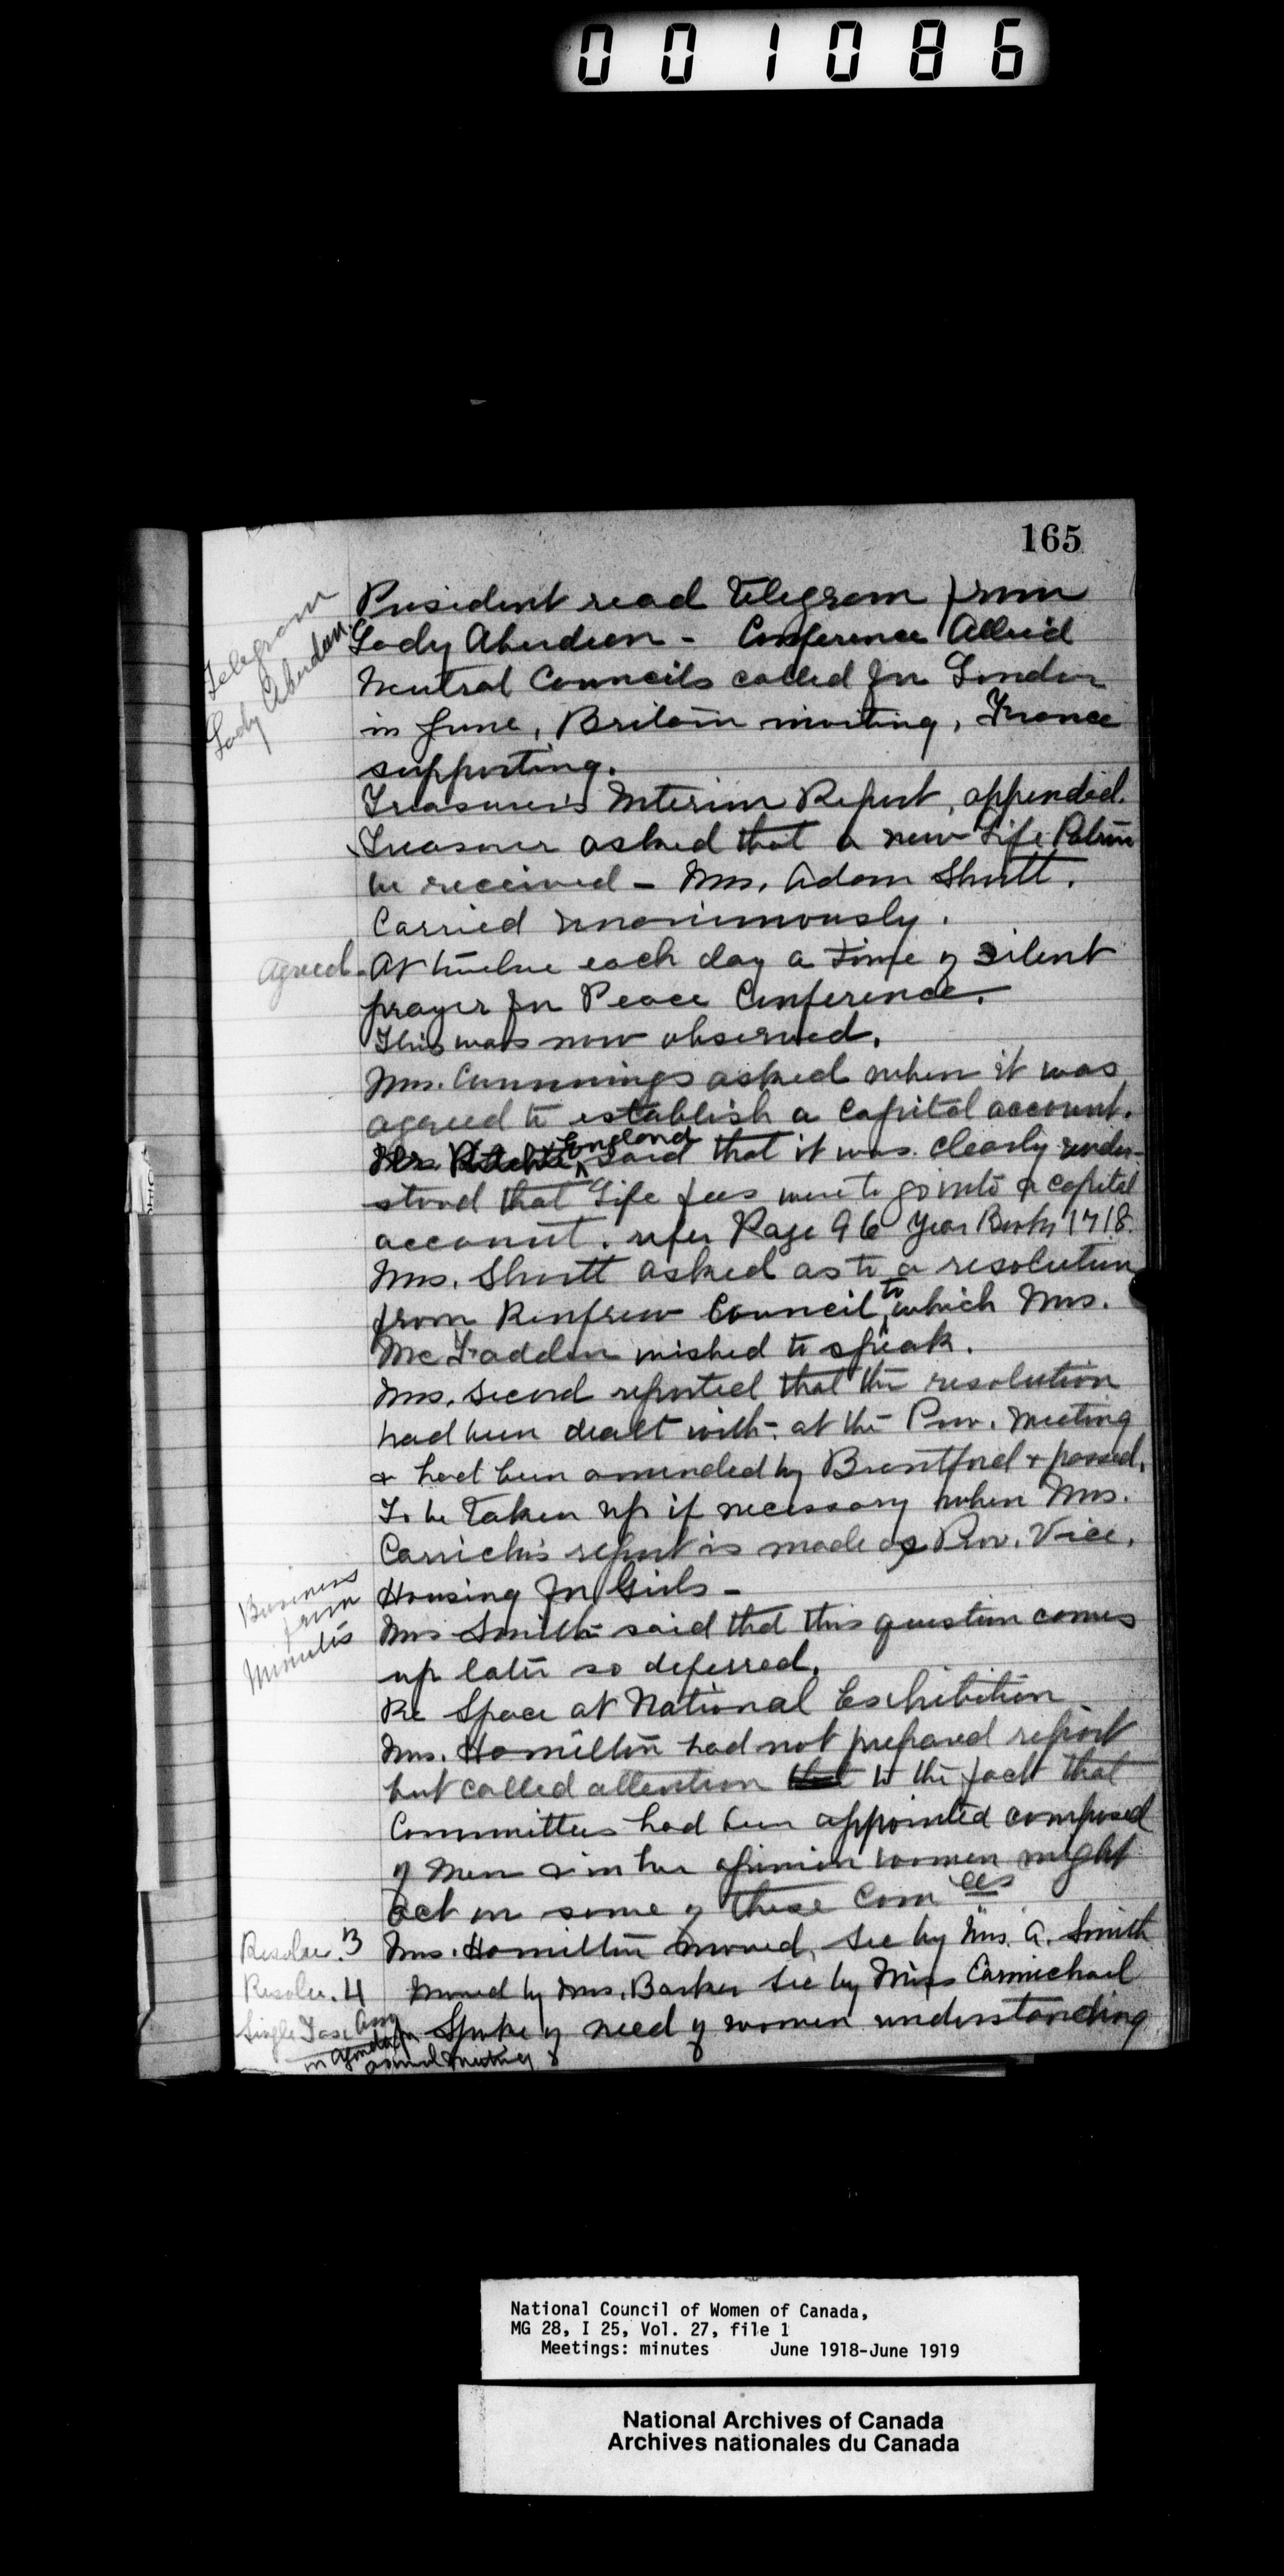 001086
165
Telegram
Lady Aberdeen.
President read telegram from
Lady Aberdeen - Conference Allied
Neutral Councils called for London
in June, Britain inviting, France
supporting.
Treasurer's Interim Report, appended.
Treasurer asked that a new Life Patron
be received - Mrs. Adam Shortt.
Carried unanimously.
Agreed. At twelve each day a time of silent
prayer for Peace Conference.
This was now observed.
Mrs. Cummings asked when it was
agreed to establish a Capital account.
England said that it was clearly under-
stood that Life fees were to go into a capital
account. refer Page 96 Year Book 1718.
Mrs. Shortt asked as to a resolution
from Renfrew Council, to which Mrs.
McFadden wished to speak.
Mrs. Secord reported that the resolution
had been dealt with - at the Prov. Meeting
& had been amended by Brantford & passed.
To be taken up if necessary when Mrs.
Carrick's report is made as Prov. Vice.
Business
from
Minutes
Housing for Girls -
Mrs Smith - said that this question comes
up later so deferred.
Re Space at National Exhibition
Mrs. Hamilton had not prepared report
but called attention that to the fact that
Committees had been appointed composed
of men & in her opinion women might
act on some of these Com ees
Resolu. 3 Mrs. Hamilton moved, sec by Mrs. A. Smith
Resolu. 4 Moved by Mrs. Barker sec by Miss Carmichael
Single Tax Assn Spoke of need of women understanding
in agenda for
annual meeting
National Council of Women of Canada,
MG 28, I 25, Vol. 27, file 1
Meetings: minutes June 1918-June 1919
National Archives of Canada
Archives nationales du Canada